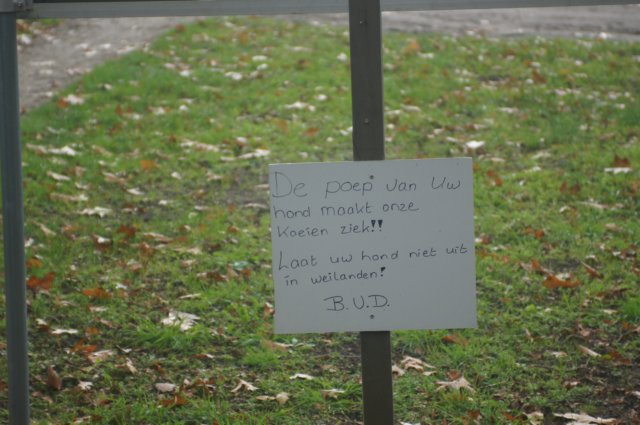 De poep van Uw
hond maakt onze
koeien ziek!!
Laat uw hond niet uit
in weilanden!
B.U.D.